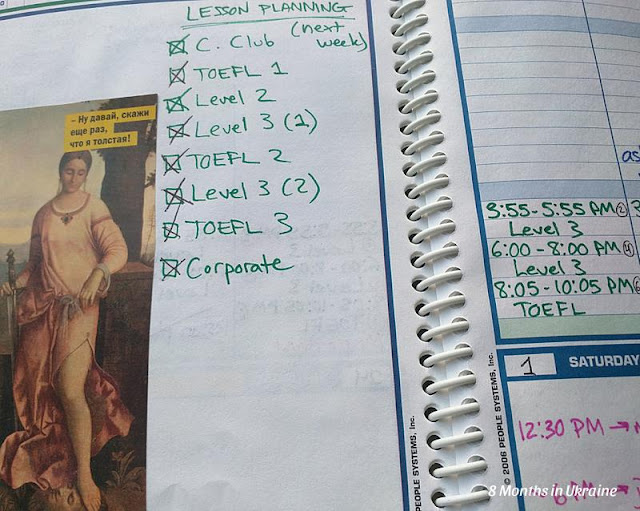 LESSON PLANNING
C. Club (next week)
TOEFL 1
Level 2
Level 3 (1)
TOEFL 2
Level 3 (2)
TOEFL 3
Corporate
– Ну давай, скажи
еще раз,
что я толстая!
PEOPLE SYSTEMS, Inc.
© 2006 PEOPLE SYSTEMS, Inc.
3:55-5:55 PM (2)
Level 3
6:00-8:00 PM (4)
Level 3
8:05-10:05 PM
TOEFL
1 SATURDAY
12:30 PM →
6 PM →
8 Months in Ukraine